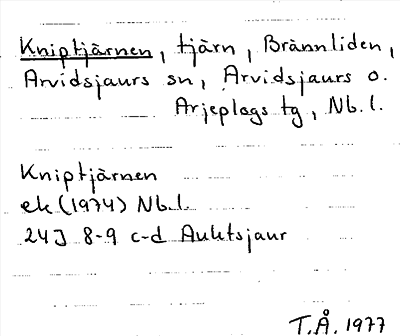 Kniptjärnen, tjärn, Brännliden,
Arvidsjaurs sn, Arvidsjaurs o.
Arjeplogs tg, Nb.l.
Kniptjärnen
ek (1974) Nb.l.
24J 8-9 c-d Auktsjaur
T.Å. 1977